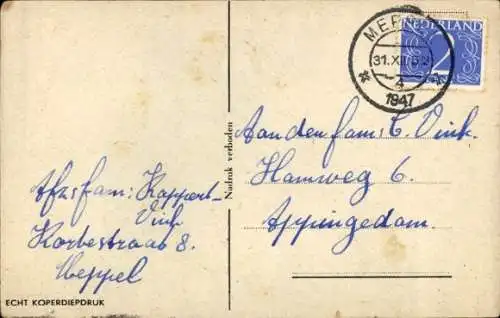 NEDERLAND
2
31.XII
4
1947
Nadruk verboden
Aan den fam: C. Vink.
Hamweg 6.
Appingedam.
Afz: fam: Kappert-
Vink
Korbestraat 8.
Meppel
ECHT KOPERDIEPDRUK